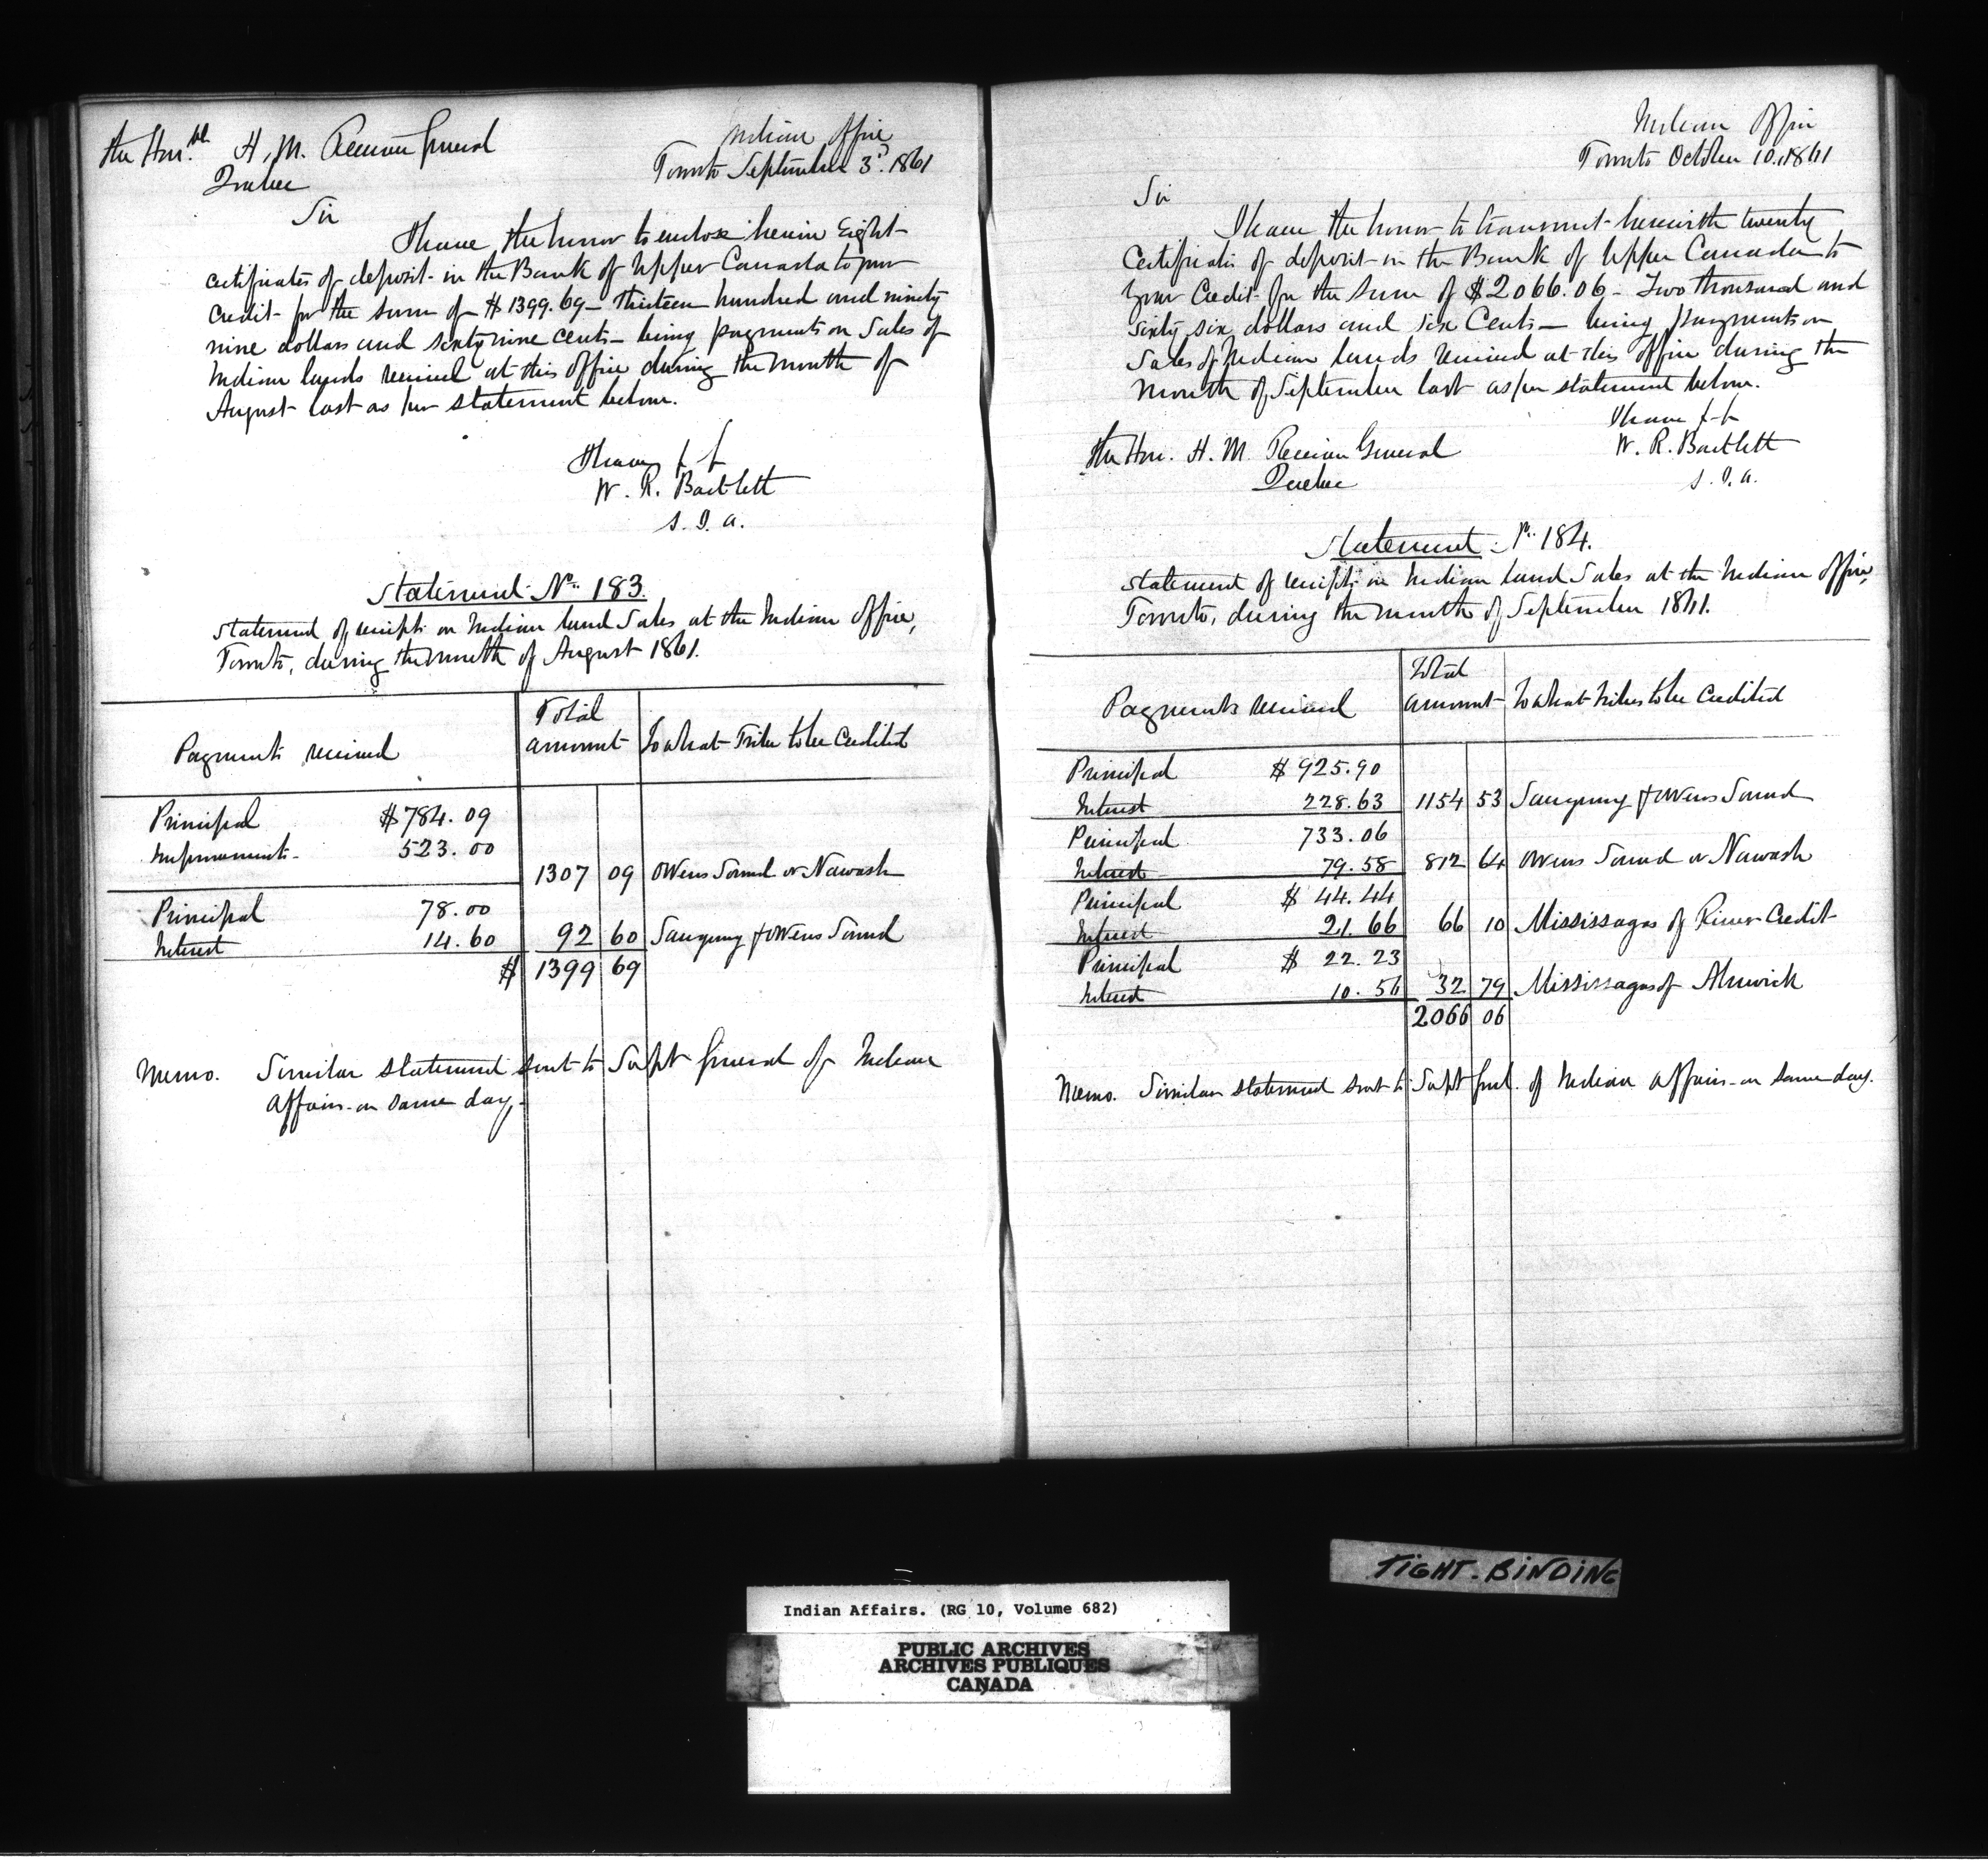 The Honble H. M. Receiver General
Quebec
Indian Office
Toronto September 3d. 1861
Sir
I have the honor to enclose herein Eight
certificates of deposit in the Bank of Upper Canada to your
credit for the sum of $1399.69 - Thirteen hundred and ninety
nine dollars and sixty nine cents - being payments on Sales of
Indian lands received at this Office during the month of
August last as per statement below.
I have &c &c
W. R. Bartlett
S. I. A.
Statement No. 183.
Statement of receipts on Indian land Sales at the Indian Office,
Toronto, during the month of August 1861.
Payments received
Total amount
To what Tribe to be Credited
Principal $784.09
Improvements 523.00
1307 09 Owens Sound or Nawash
Principal 78.00
Interest 14.60 92 60 Saugeeng & Owens Sound
$ 1399 69
Memo. Similar statement sent to Supt General of Indian
Affairs on same day.
Indian Office
Toronto October 10. 1861
Sir
I have the honor to transmit herewith twenty
Certificates of deposit in the Bank of Upper Canada to
your Credit for the sum of $2066.06 - Two thousand and
sixty six dollars and six Cents - being payments on
Sales of Indian lands received at this Office during the
month of September last as per statement below.
I have &c &c
The Hon. H. M. Receiver General
Quebec
W. R. Bartlett
S. I. A.
Statement No. 184.
Statement of receipts on Indian land Sales at the Indian Office,
Toronto, during the month of September 1861.
Payments received
Total amount
To what Tribes to be Credited
Principal $925.90
Interest 228.63 1154 53 Saugeeng & Owens Sound
Principal 733.06
Interest 79.58 812 64 Owens Sound or Nawash
Principal $ 44.44
Interest 21.66 66 10 Mississagas of River Credit
Principal $ 22.23
Interest 10.56 32 79 Mississagas of Alnwick
2066 06
Memo. Similar statement sent to Supt Genl. of Indian Affairs on same day.
TIGHT-BINDING
Indian Affairs. (RG 10, Volume 682)
PUBLIC ARCHIVES
ARCHIVES PUBLIQUES
CANADA